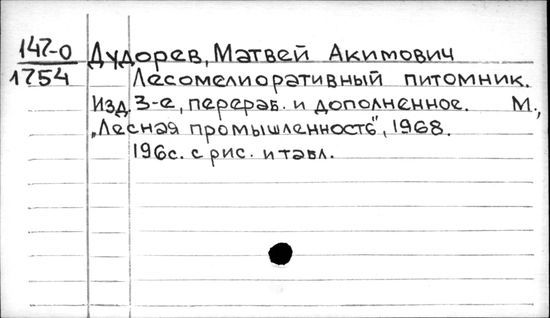 147-0 Дудорев, Матвей Акимович
1754 Лесомелиоративный питомник.
Изд. 3-е, перераб. и дополненное. М.,
„Лесная промышленность", 1968.
196с. с рис. и табл.